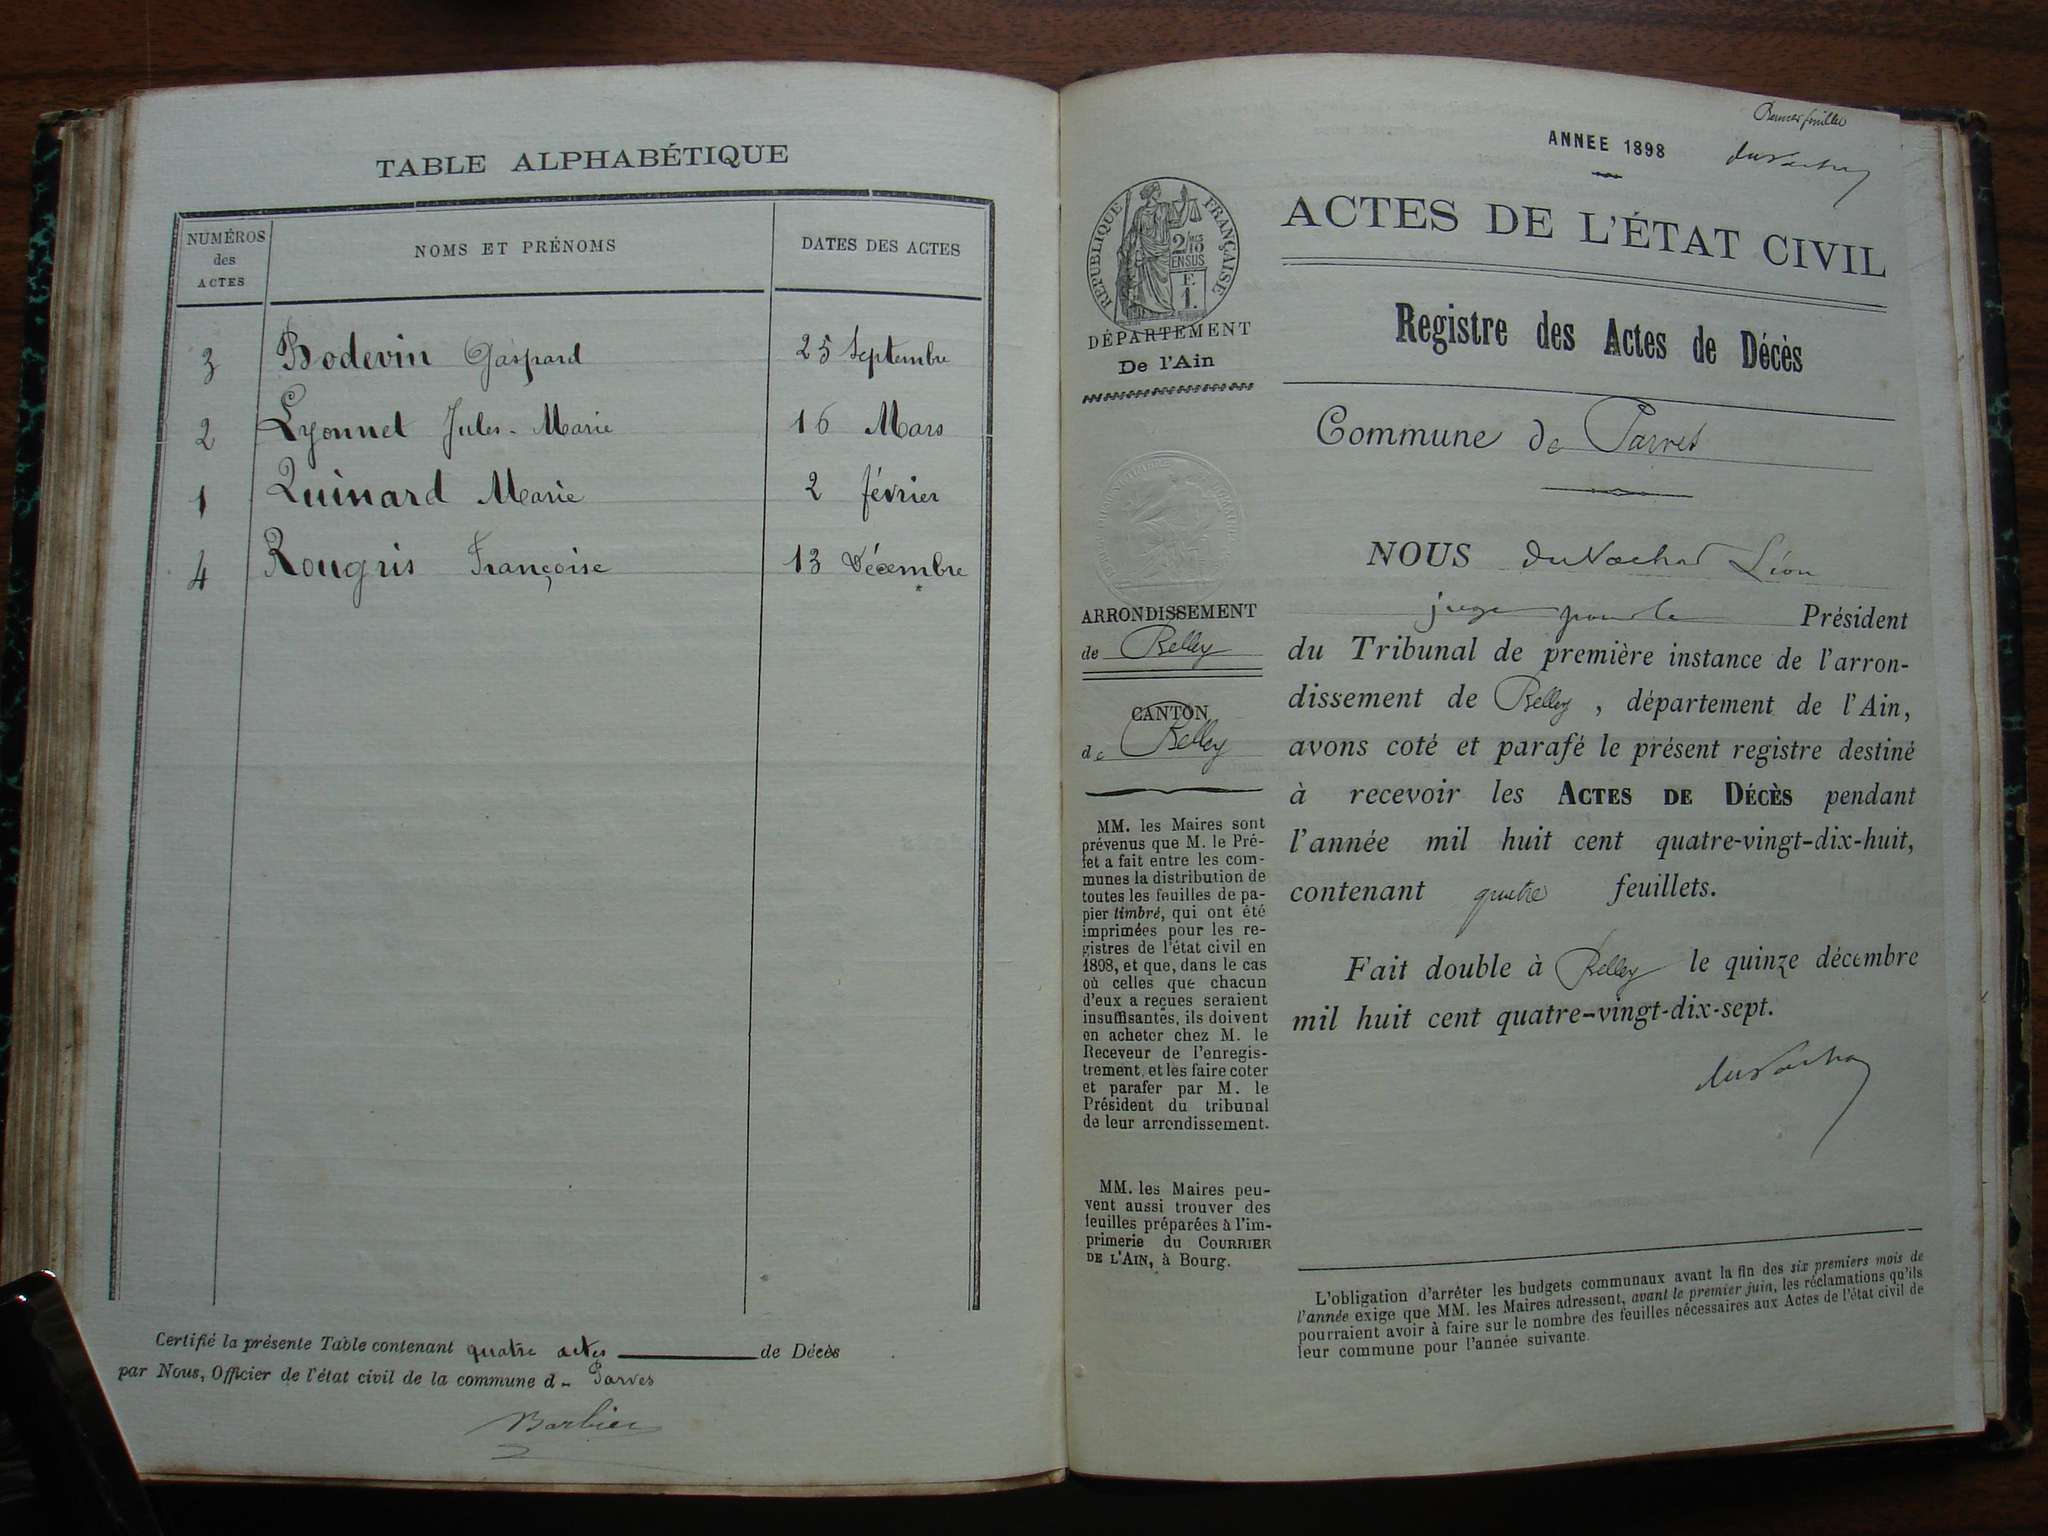 TABLE ALPHABÉTIQUE
NUMÉROS des ACTES NOMS ET PRÉNOMS DATES DES ACTES
3 Bodevin Gaspard 25 Septembre
2 Lyonnet Jules-Marie 16 Mars
1 Quinard Marie 2 février
4 Rougris Françoise 13 Décembre
Certifié la présente Table contenant quatre actes de Décès
par Nous, Officier de l'état civil de la commune d- Parves
Barbier
ANNEE 1898
ACTES DE L'ÉTAT CIVIL
Registre des Actes de Décès
Commune de Parves
RÉPUBLIQUE FRANÇAISE
2/10 EN SUS
E.
1.
DÉPARTEMENT
De l'Ain
ARRONDISSEMENT
de Belley
CANTON
de Belley
MM. les Maires sont
prévenus que M. le Pré-
fet a fait entre les com-
munes la distribution de
toutes les feuilles de pa-
pier timbré, qui ont été
imprimées pour les re-
gistres de l'état civil en
1898, et que, dans le cas
où celles que chacun
d'eux a reçues seraient
insuffisantes, ils doivent
en acheter chez M. le
Receveur de l'enregis-
trement, et les faire coter
et parafer par M. le
Président du tribunal
de leur arrondissement.
MM. les Maires peu-
vent aussi trouver des
feuilles préparées à l'im-
primerie du COURRIER
DE L'AIN, à Bourg.
NOUS Léon
juge pour le Président
du Tribunal de première instance de l'arron-
dissement de Belley, département de l'Ain,
avons coté et parafé le présent registre destiné
à recevoir les ACTES DE DÉCÈS pendant
l'année mil huit cent quatre-vingt-dix-huit,
contenant quatre feuillets.
Fait double à Belley le quinze décembre
mil huit cent quatre-vingt-dix-sept.
L'obligation d'arrêter les budgets communaux avant la fin des six premiers mois de
l'année exige que MM. les Maires adressent, avant le premier juin, les réclamations qu'ils
pourraient avoir à faire sur le nombre des feuilles nécessaires aux Actes de l'état civil de
leur commune pour l'année suivante.